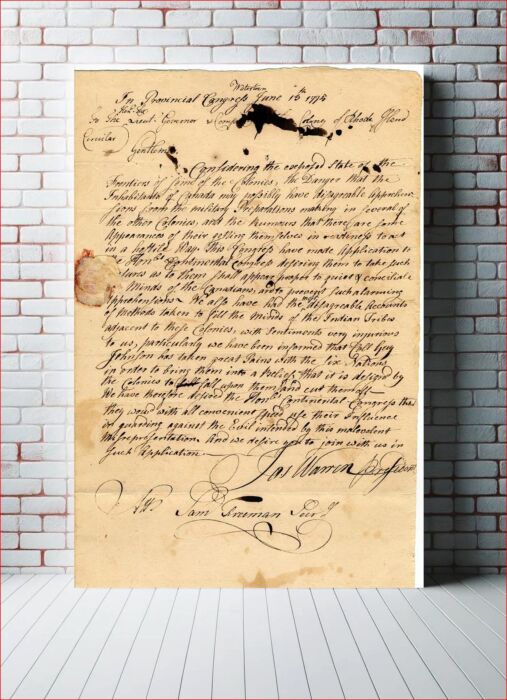 Watertown
In Provincial Congress June 15th 1775
To the Governor Colony of Rhode Island
Circular
Gentlemen
Considering the exposed State of the
Frontiers of some of the Colonies, the Danger that the
Inhabitants of Canada may possibly have disagreable Apprehen-
sions from the military Preparations making in several of
the other Colonies and the Rumours that there are some
Appearances of their setting themselves in readiness to act
in a hostile Way This Congress have made Application to
the Honble Continental Congress desiring them to take such
as to them shall appear proper to quiet & conciliate
Minds of the Canadians, and to prevent such alarming
Apprehensions. We also have had the disagreable Accounts
of Methods taken to fill the Minds of the Indian Tribes
adjacent to these Colonies, with Sentiments very injurious
to us, particularly we have been informed that Guy
Johnson has taken great Pains with the Six Nations
in order to bring them into a Belief that it is design'd by
the Colonies to fall upon them and cut them off
We have therefore desired the Honble Continental Congress that
they woud with all convenient speed use their Influence
in guarding against the Evil intended by this malevolent
misrepresentation And we desire you to join with us in
such Application.
Jas Warren Presidt
Saml Freeman Secry